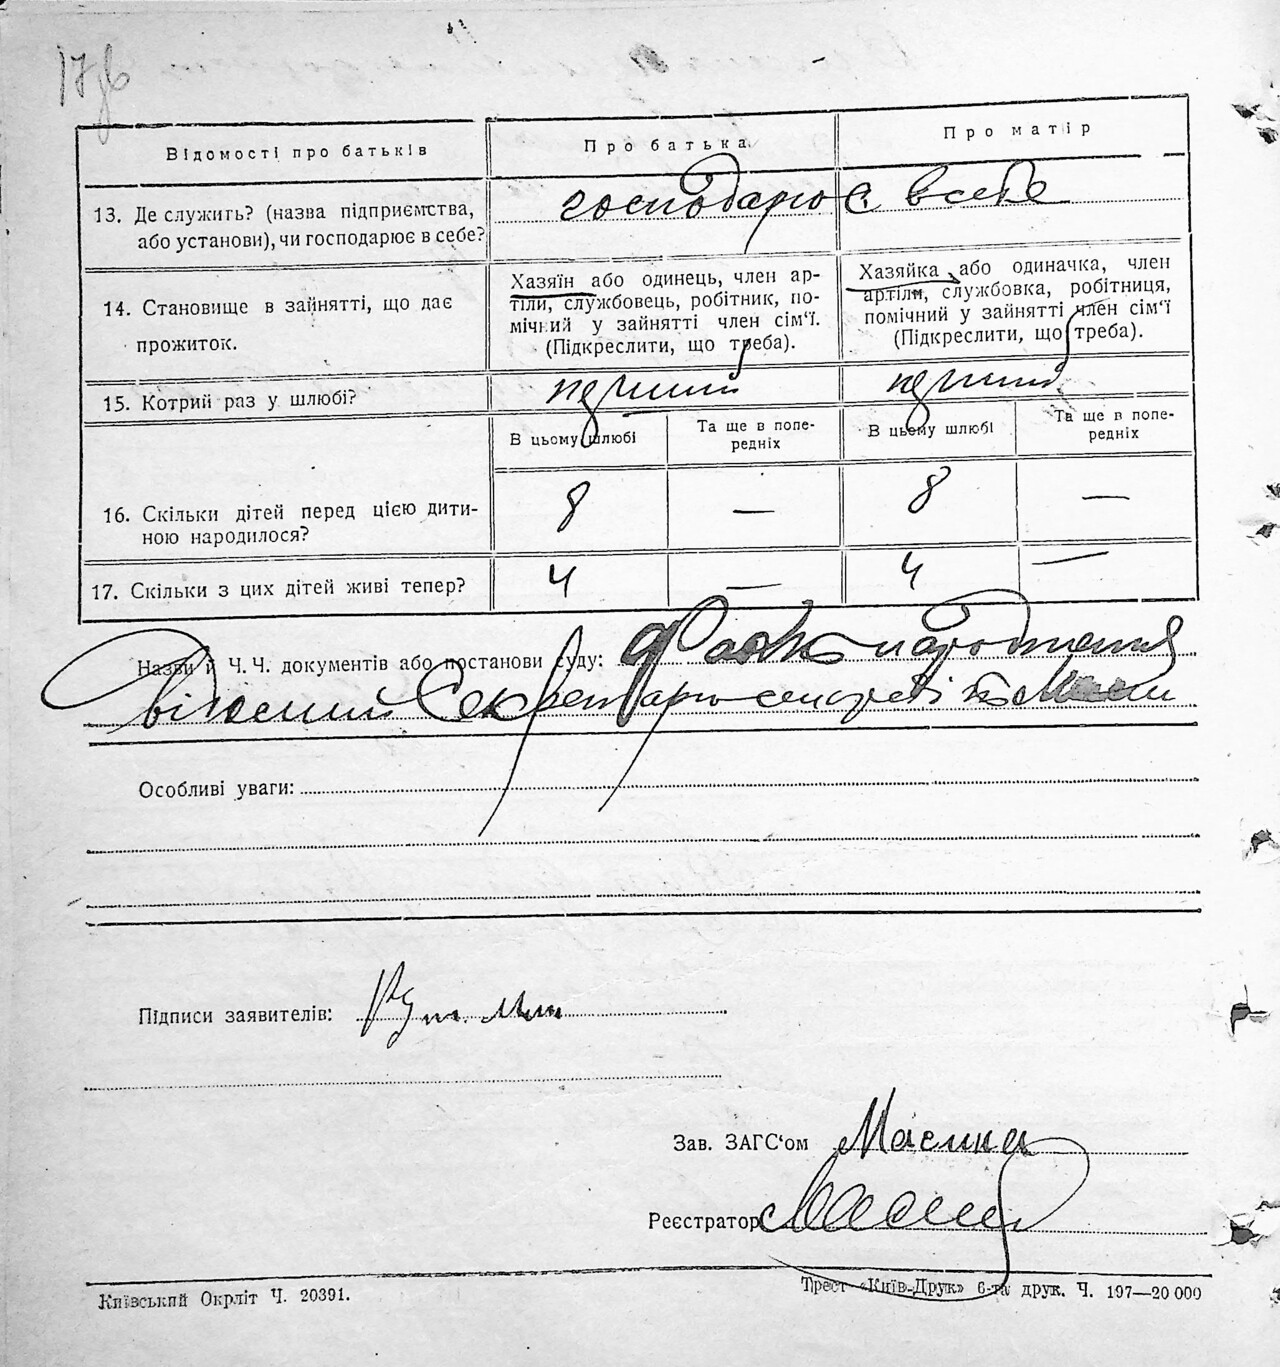 17
Відомості про батьків
Про батька
Про матір
13. Де служить? (назва підприємства,
або установи), чи господарює в себе?
господарює в себе
14. Становище в зайнятті, що дає
прожиток.
Хазяїн або одинець, член ар-
тіли, службовець, робітник, по-
мічний у зайнятті член сім'ї.
(Підкреслити, що треба).
Хазяйка або одиначка, член
артіли, службовка, робітниця,
помічний у зайнятті член сім'ї
(Підкреслити, що треба).
15. Котрий раз у шлюбі?
перший
перший
В цьому шлюбі
Та ще в попе-
редніх
В цьому шлюбі
Та ще в попе-
редніх
16. Скільки дітей перед цією дити-
ною народилося?
8
—
8
—
17. Скільки з цих дітей живі тепер?
4
—
4
—
Назви й Ч.Ч. документів або постанови суду: Факт народження
відомий Секретарю сільради
Особливі уваги:
Підписи заявителів:
Зав. ЗАГС'ом
Реєстратор
Київський Окрліт Ч. 20391.
Трест «Київ-Друк» 6-та друк. Ч. 197—20 000